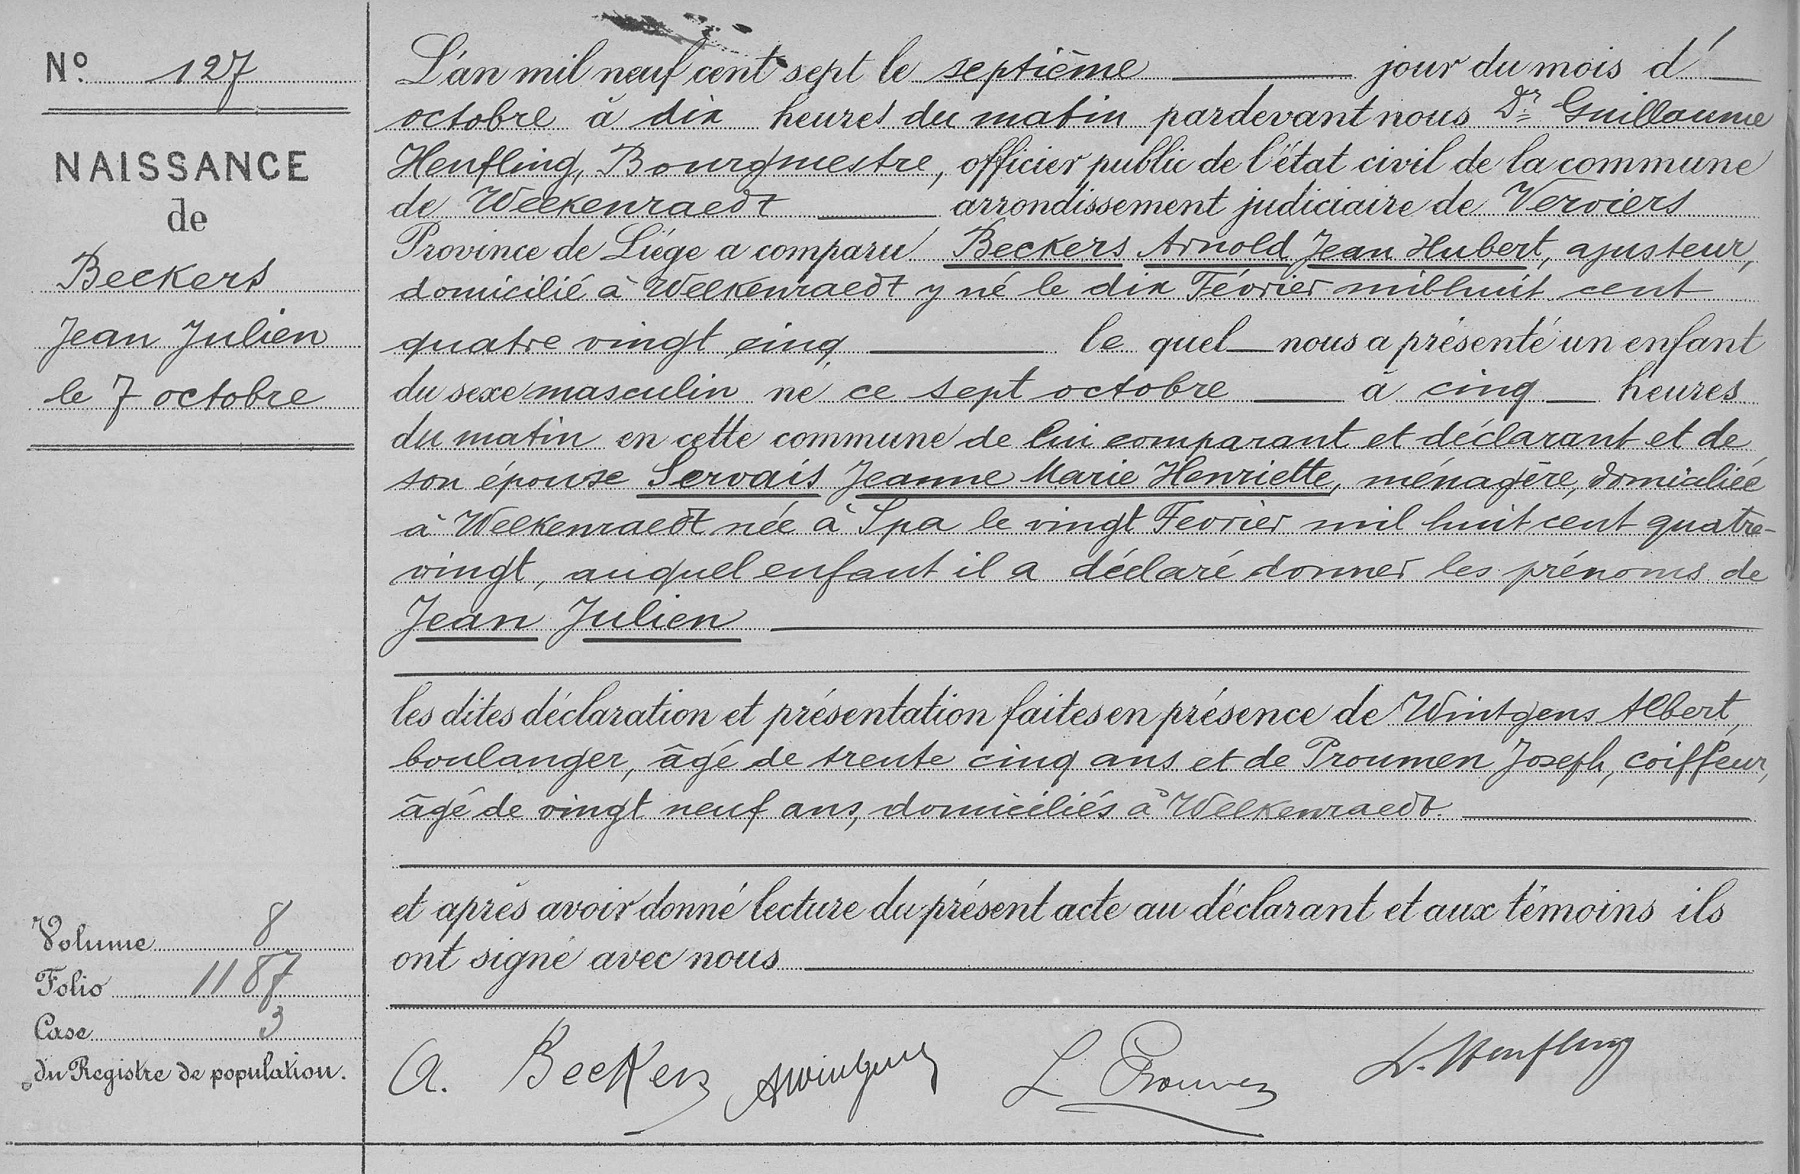 N° 127
NAISSANCE
de
Beckers
Jean Julien
le 7 octobre
L'an mil neuf cent sept le septième jour du mois d'
octobre à dix heures du matin pardevant nous Dr Guillaume
Henfling, Bourgmestre, officier public de l'état civil de la commune
de Welkenraedt arrondissement judiciaire de Verviers
Province de Liége a comparu Beckers Arnold Jean Hubert, ajusteur,
domicilié à Welkenraedt y né le dix Février mil huit cent
quatre vingt cinq le quel nous a présenté un enfant
du sexe masculin né ce sept octobre à cinq heures
du matin en cette commune de lui comparant et déclarant et de
son épouse Servais Jeanne Marie Henriette, ménagère, domiciliée
à Welkenraedt née à Spa le vingt Fevrier mil huit cent quatre-
vingt, auquel enfant il a déclaré donner les prénoms de
Jean Julien
les dites déclaration et présentation faites en présence de Wintgens Albert,
boulanger, âgé de trente cinq ans et de Proumen Joseph, coiffeur,
âgé de vingt neuf ans, domiciliés à Welkenraedt.
et après avoir donné lecture du présent acte au déclarant et aux témoins ils
ont signé avec nous
Volume 8
Folio 1187
Case 3
du Registre de population.
A. Beckers AWintgens Proumen Henfling